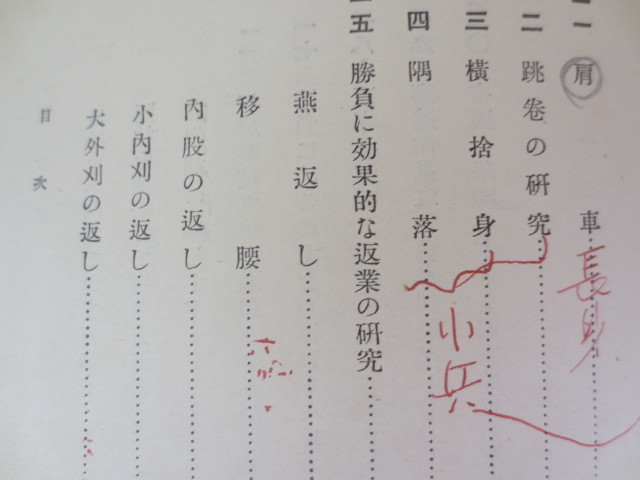 一 肩車
長身
二 跳巻の研究
三 横捨身
四 隅落
小兵
五 勝負に効果的な返業の研究
燕返し
移腰
内股の返し
小内刈の返し
大外刈の返し
目次